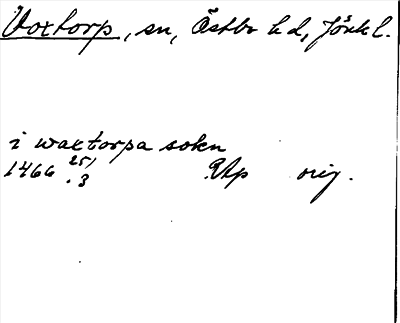 Voxtorp, sn, Östbo hd, Jönk l.
i waxtorpa sokn
1466 25/3 RAp orig.